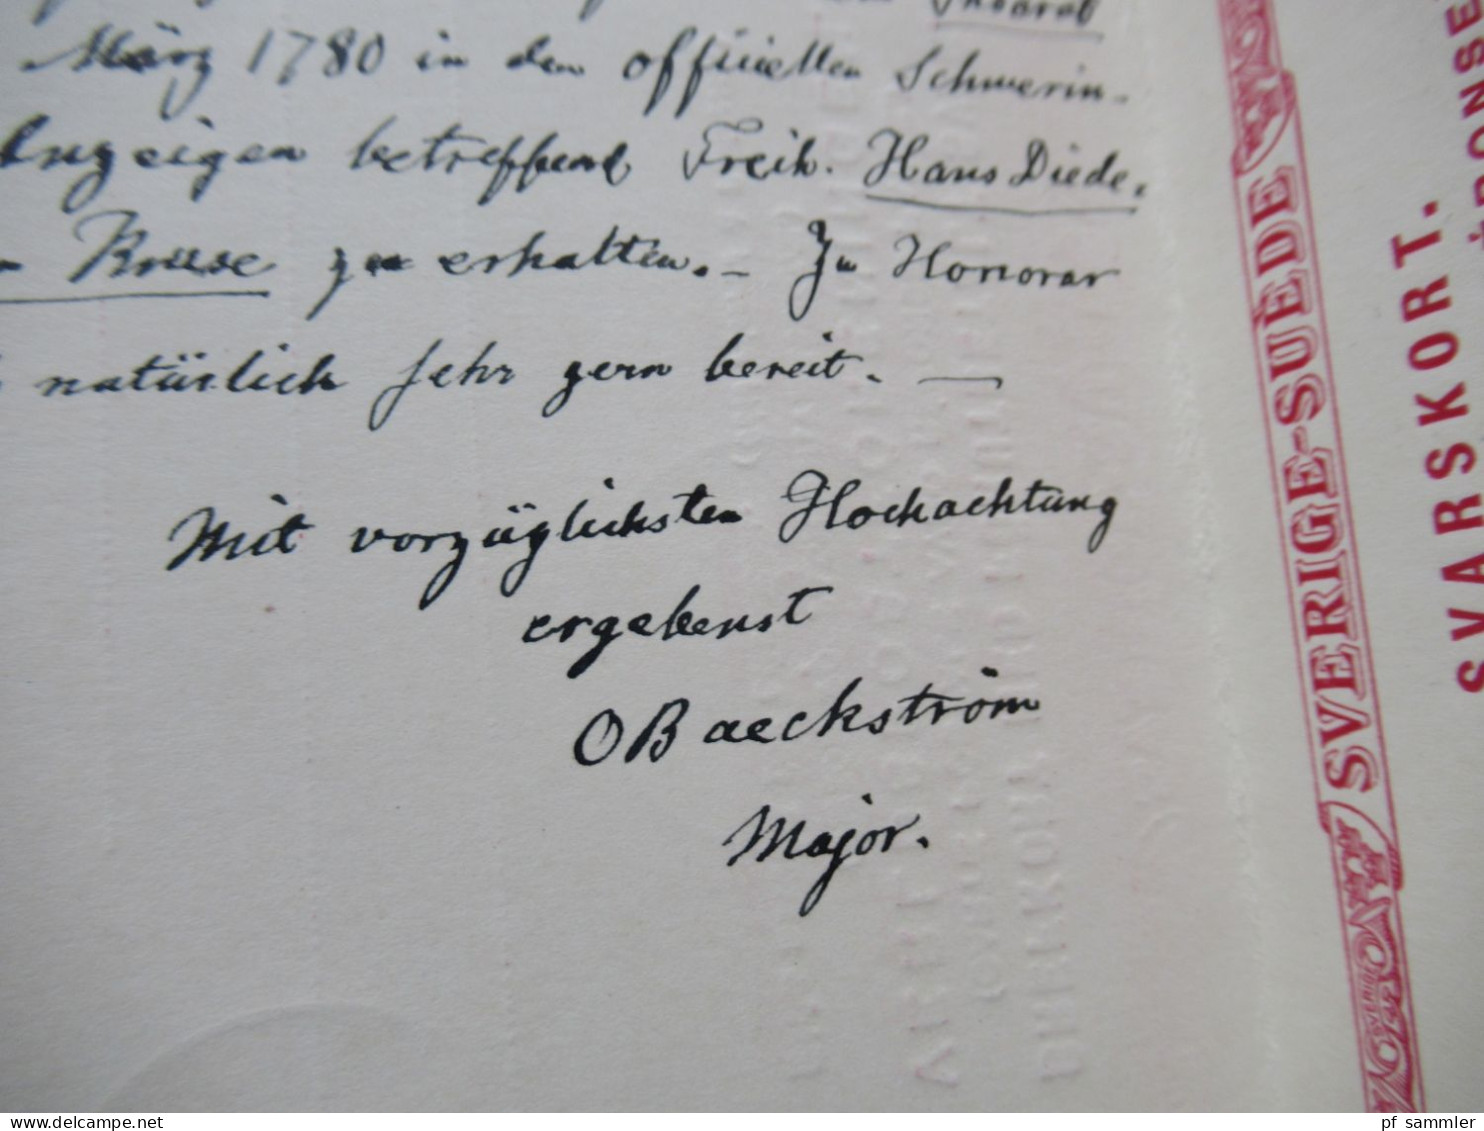 März 1780 in den officiellen Schwerin-
Anzeigen betreffend Freih. Hans Diede-
zu erhalten. – Zu Honorar
natürlich sehr gern bereit. —
Mit vorzüglichsten Hochachtung
ergebenst
OBaeckström
Major.
SVERIGE-SUÈDE
SVARSKORT.
pf_sammler